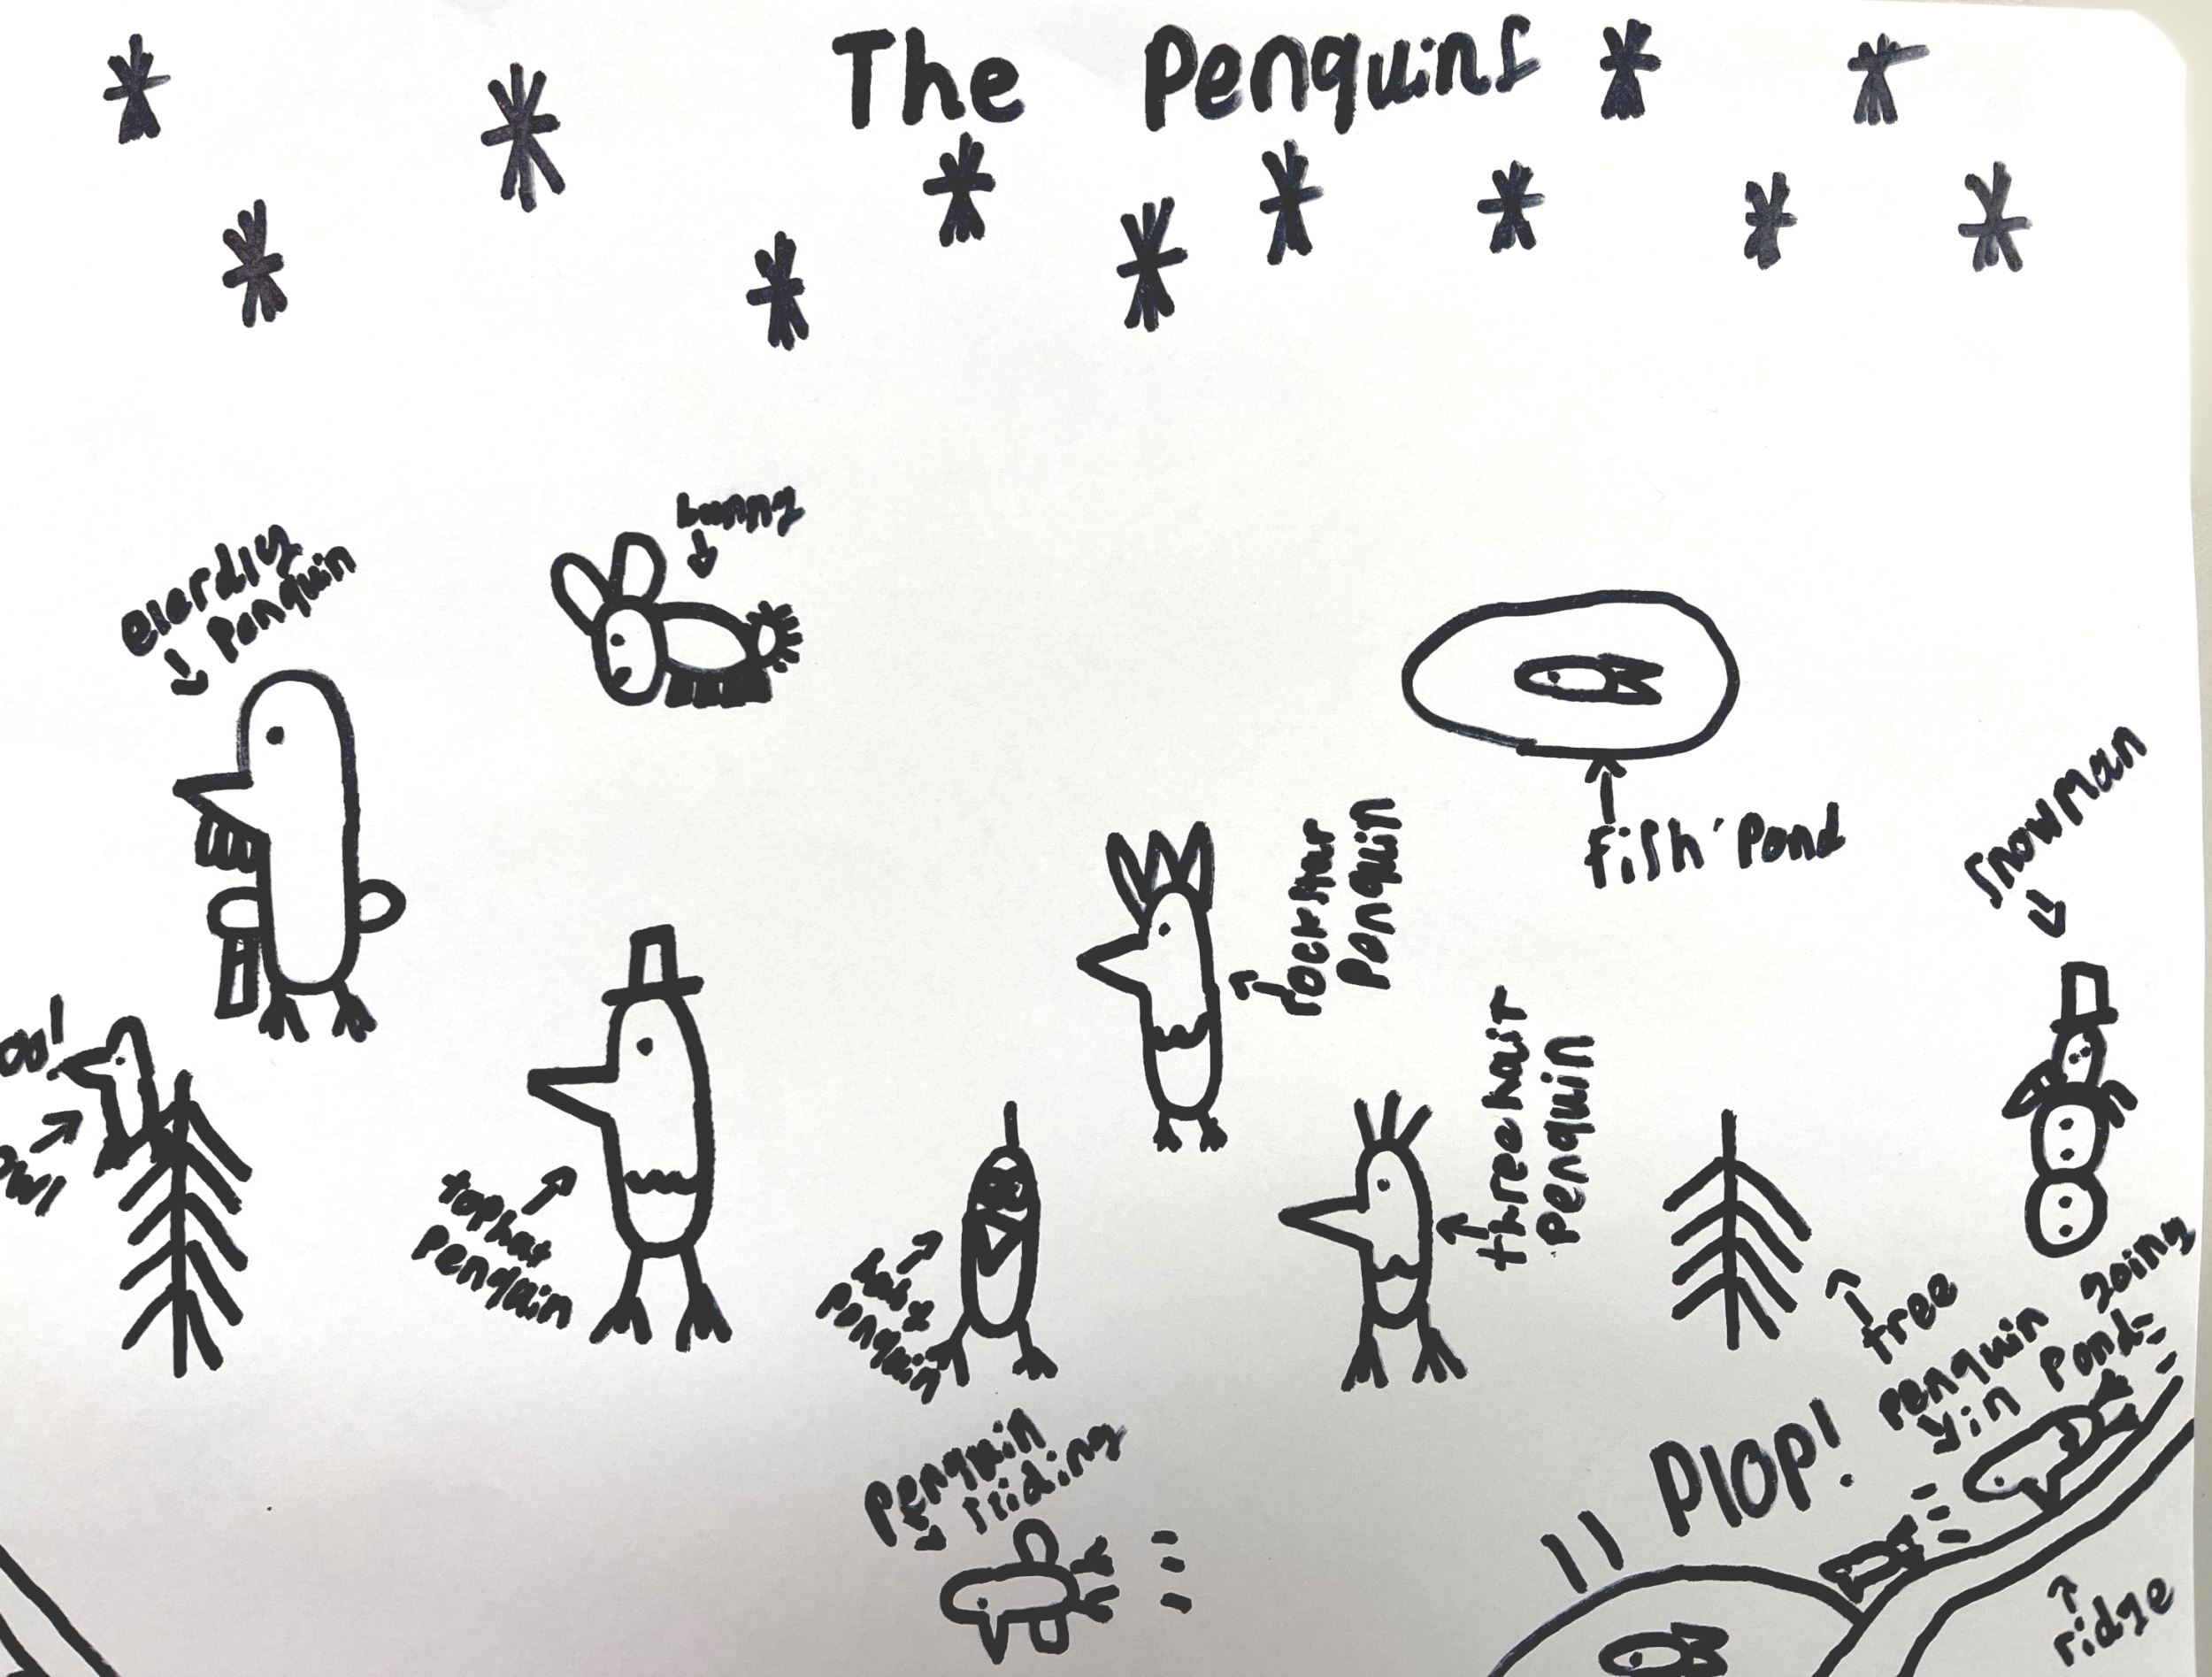 The Penquins
bunny
elerdly
Penquin
fish Pond
snowman
rockstar
Penquin
three hair
penquin
tophat
Penquin
Penquin
tree
Penquin going
in Pond
Plop!
Penquin
sliding
ridge